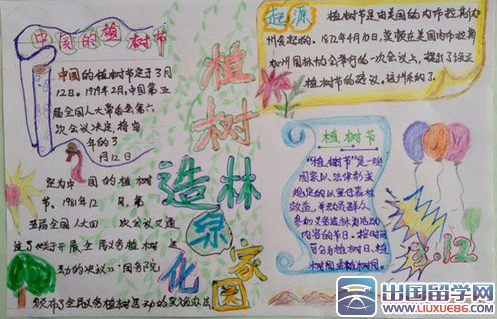 中国的植树节
中国的植树节定于3月
12日。1979年2月,中国第五
届全国人大常委会第六
次会议决定,将每
年的3
月12日
定为中国的植树
节。1981年12月,第
五届全国人大四次会议又通
过了《关于开展全民义务植树运
动的决议》。国务院
颁布了全民义务植树运动的实施办法
植树
造林
绿化
家园
起源
植树节是由美国的内布拉斯加
州发起的。1872年4月10日,莫顿在美国内布拉斯
加州园林协会举行的一次会议上,提出了设立
植树节的建议。该州采纳了
植树节
"植树节"是一些
国家以法律形式
规定的以宣传森林
效益,并动员群人
参加义务造林为活动
内容的节日。按时间
可分为植树日、植
树周或植树月。
3.12
出国留学网
www.liuxue86.com